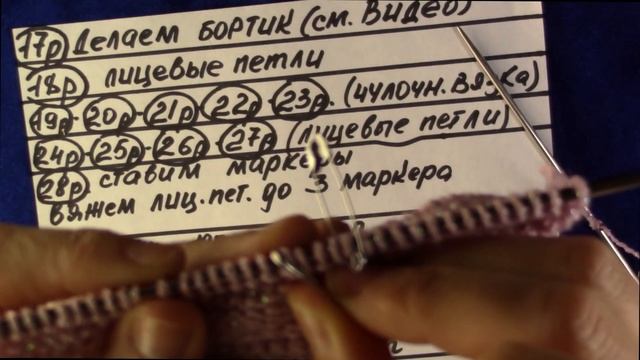 17р Делаем бортик (см. Видео)
18р лицевые петли
19р-20р-21р-22р-23р. (чулочн. вязка)
24р-25р-26р-27р (лицевые петли)
28р ставим маркеры
вяжем лиц. пет. до 3 маркера